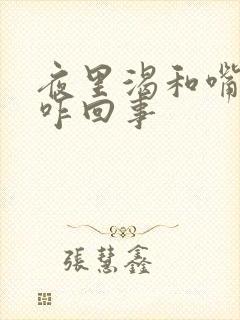 夜里渴和嘴
咋回事
張慧鑫